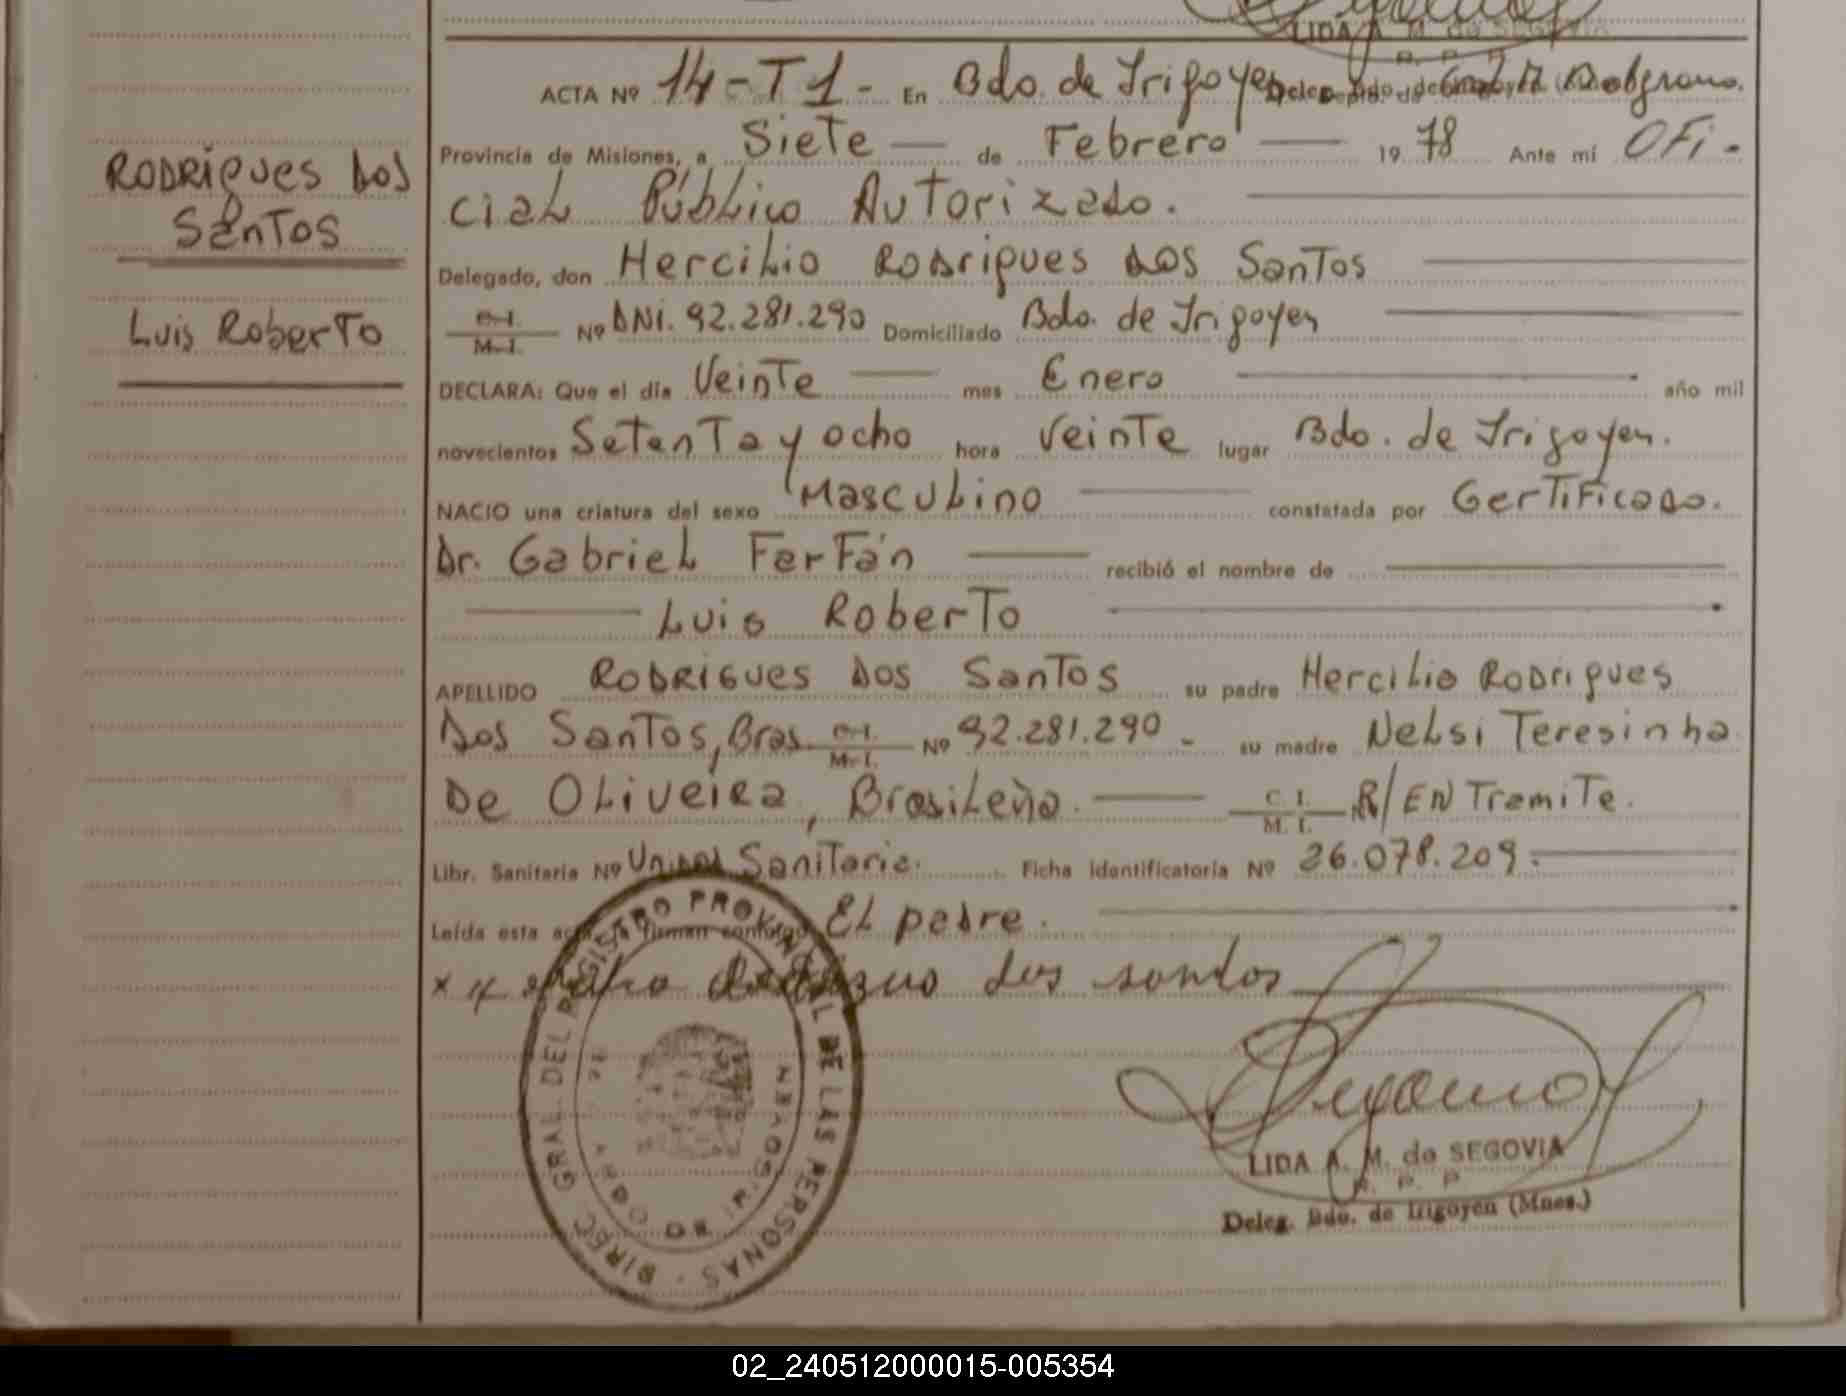 LIDA A. M. de SEGOVIA
ACTA Nº 14-T1- En Bdo. de Irigoyen Depto. de Gral. M. Belgrano.
Provincia de Misiones, a Siete de Febrero 1978 Ante mí OFi-
ciaL PúbLico AuTorizado.
Delegado, don HerciLio Rodrigues dos SanTos
C.I. M.I. Nº DNi. 92.281.290 Domiciliado Bdo. de Irigoyen
DECLARA: Que el día VeinTe mes Enero año mil
novecientos SetenTa y ocho hora VeinTe lugar Bdo. de Irigoyen.
NACIO una criatura del sexo MascuLino constatada por CerTiFicado.
Dr. GabrieL FarFán recibió el nombre de
Luis RoberTo
APELLIDO RODRIGUES DOS SanTos su padre HerciLio Rodrigues
Dos SanTos, Bras. C.I. M.I. Nº 92.281.290- su madre NeLsi Teresinha
De OLiveira, BrasiLeña. C.I. M.I. R/EN TramiTe.
Libr. Sanitaria Nº Unidad SaniTaria. Ficha identificatoria Nº 26.078.209.
Leída esta acta, la firman conmigo EL padre.
x dos santos
RODRIGUES DOS
SANTOS
Luis RoberTo
DIREC. GRAL. DEL REGISTRO PROVINCIAL DE LAS PERSONAS
LIDA A. M. de SEGOVIA
R. P. P.
Deleg. Bdo. de Irigoyen (Mnes.)
02_240512000015-005354